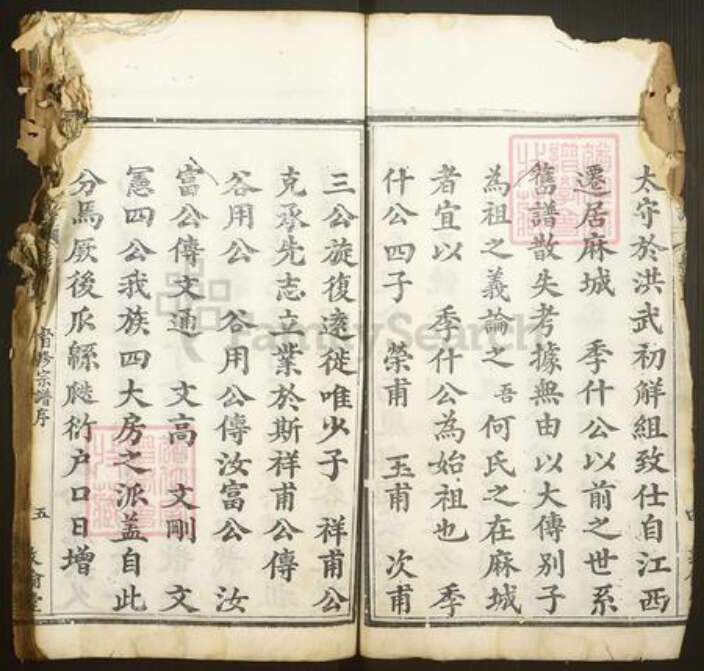 太守於洪武初解組致仕自江西
遷居麻城 季什公以前之世系
舊譜散失考據無由以大傳別子
為祖之義論之吾何氏之在麻城
者宜以 季什公為始祖也 季
什公四子 榮甫 玉甫 次甫
三公旋復遠徙唯少子 祥甫公
克承先志立業於斯祥甫公傳
谷用公 谷用公傳汝富公 汝
富公傳文通 文高 文剛 文
憲四公我族四大房之派蓋自此
分焉厥後瓜緜瓞衍户口日增
宗譜序
五
FamilySearch